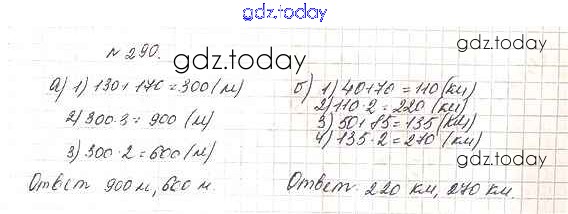 gdz.today
№ 290.
gdz.today
gdz.today
а) 1) 130+170=300(м)
2) 300·3=900 (м)
3) 300·2=600(м)
Ответ 900 м, 600 м.
б) 1) 40+70=110(км)
2) 110·2=220(км)
3) 50+85=135(км)
4) 135·2=270(км)
gdz.today
Ответ. 220 км, 270 км.